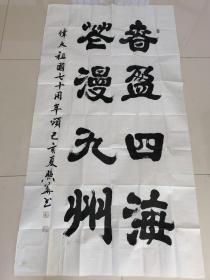 春盈四海
花漫九州
伟大祖国七十周年颂己亥夏